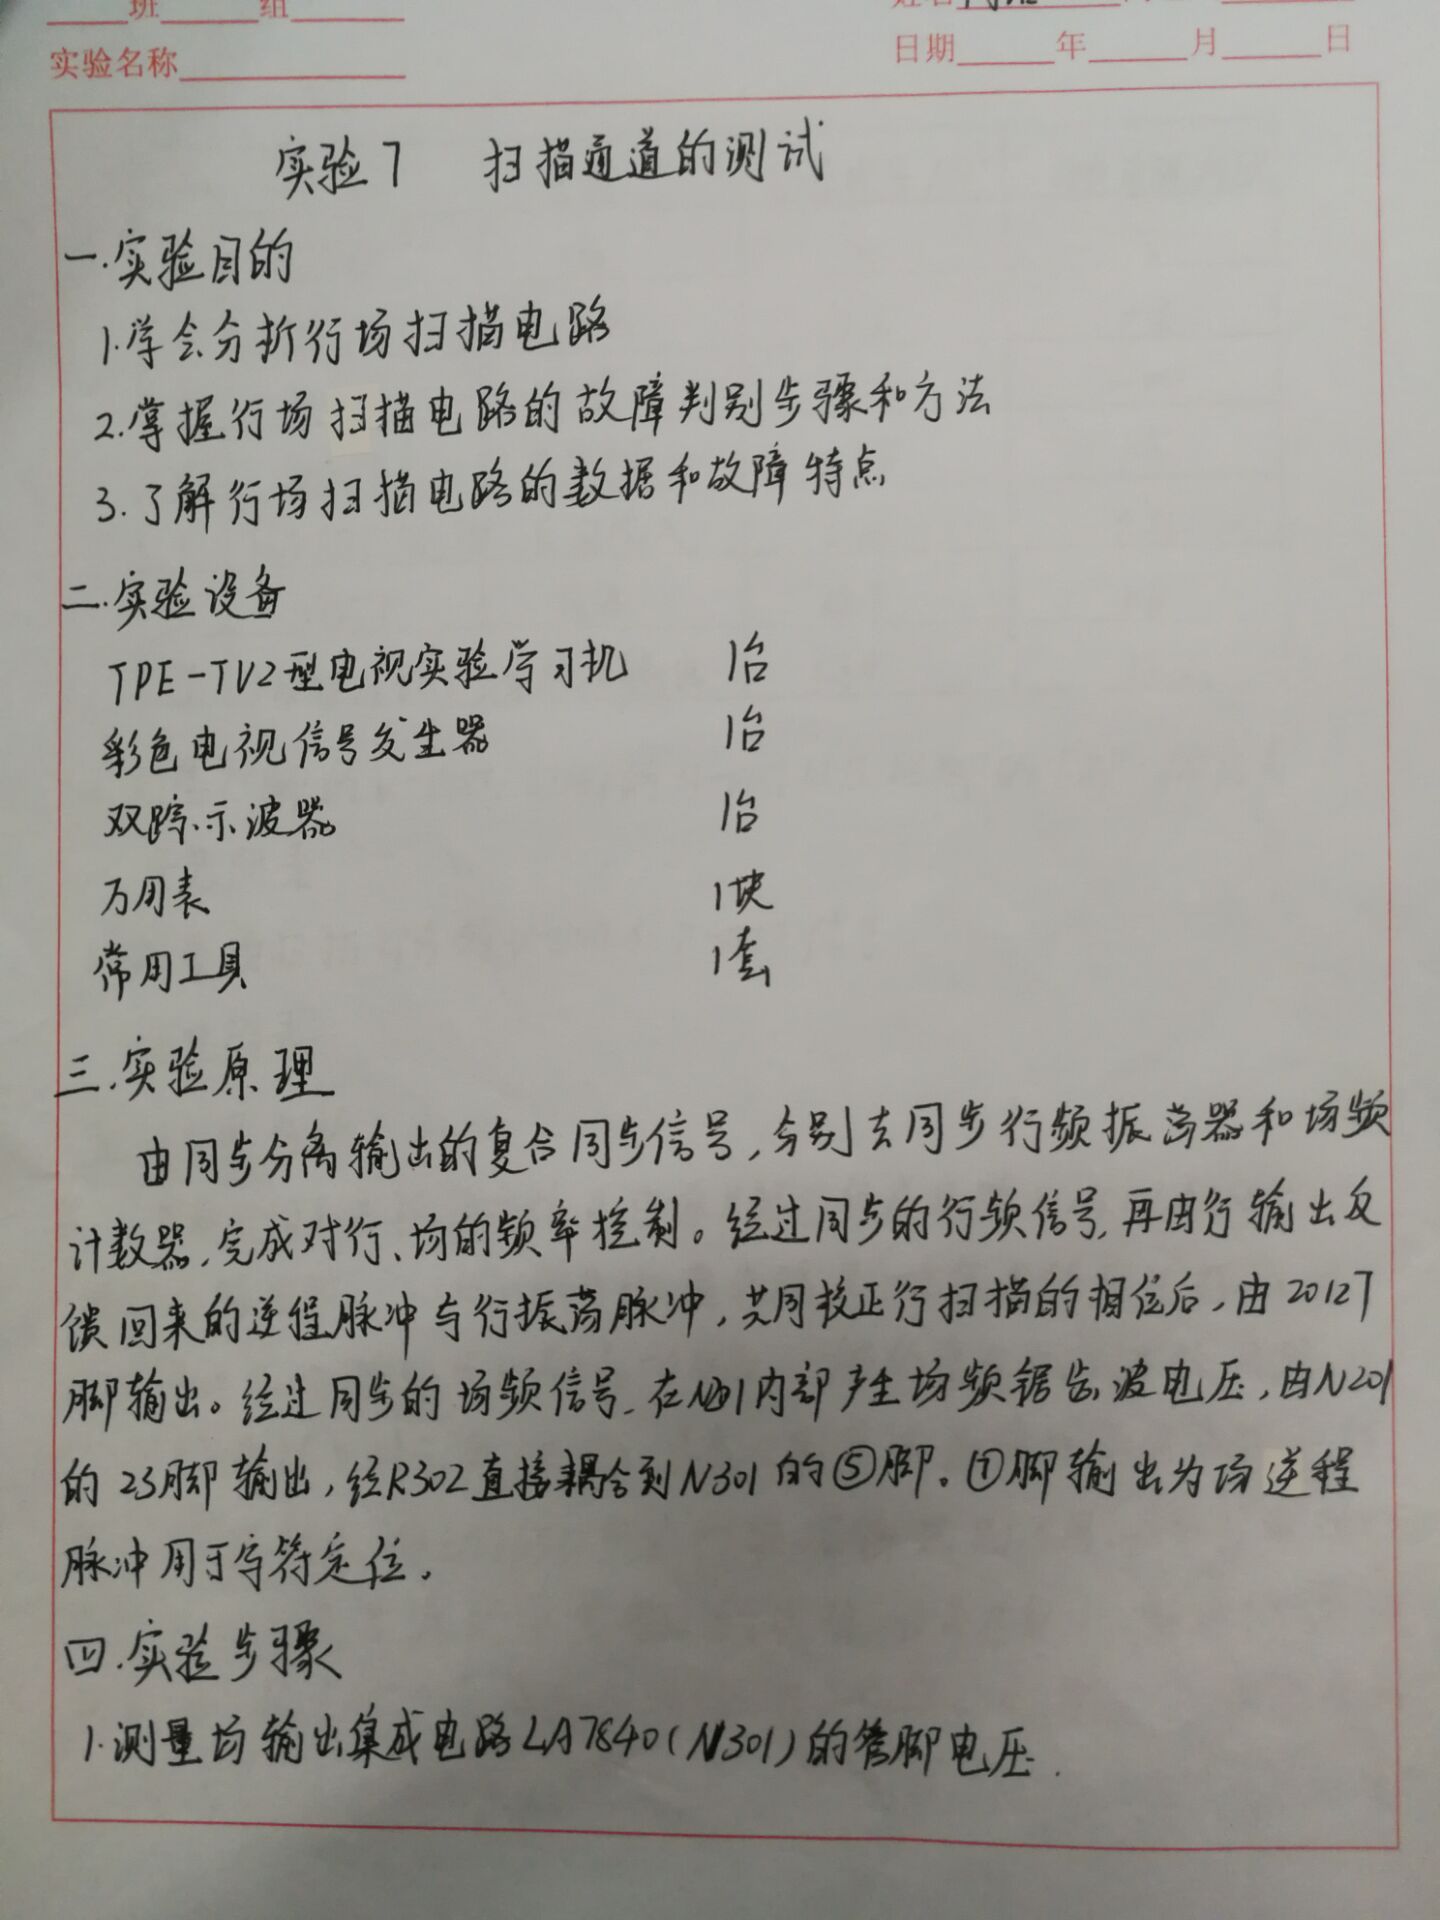 班 组
实验名称
日期 年 月 日
实验7 扫描通道的测试
一.实验目的
1.学会分折行场扫描电路
2.掌握行场扫描电路的故障判别步骤和方法
3.了解行场扫描电路的数据和故障特点
二.实验设备
TPE-TV2型电视实验学习机 1台
彩色电视信号发生器 1台
双踪示波器 1台
万用表 1块
常用工具 1套
三.实验原理
由同步分离输出的复合同步信号,分别去同步行频振荡器和场频
计数器,完成对行、场的频率控制。经过同步的行频信号,再由行输出反
馈回来的逆程脉冲与行振荡脉冲,共同校正行扫描的相位后,由20127
脚输出。经过同步的场频信号,在N201内部产生场频锯齿波电压,由N201
的23脚输出,经R302直接耦合到N301的⑤脚。①脚输出为场逆程
脉冲用于字符定位。
四.实验步骤
1.测量场输出集成电路LA7840(N301)的管脚电压.